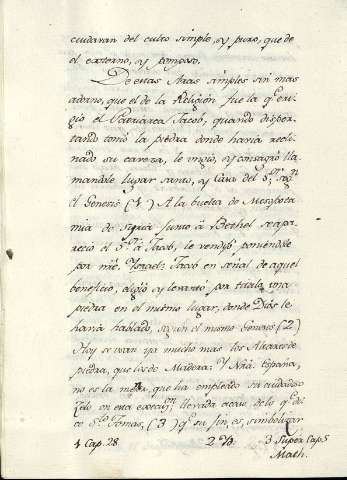 cuidaran del culto simple, y puro, que de
el externo, y pomposo.
De estas Aras simples sin mas
adorno, que el de la Religión fue la q.e eri-
gio el Patriarca Jacob, quando dispor-
tando tomó la piedra donde havia recli-
nado su caveza, le ungio, y consagró lla-
mandole lugar santo, y Casa del S.r seg.n
el Genesis (1) A la buelta de Mesopota
mia de Syria junto á Bethel se apa-
recio el S.r á Jacob, le vendijo poniendole
por nre. Ysrael: Jacob en señal de aquel
beneficio, eligió y levantó por titulo una
piedra en el mismo lugar, donde Dios le
havia hablado, segun el mismo Genesis (2)
Hoy se usan ya mucho mas los Altares de
piedra, que los de Madera: Y Nrã España,
no es la q.e ha empleado su cuidadoso
zelo en esta execuc.n llevada acaso de lo q.e di-
ce S.to Tomas, (3) q.e su fin, es, simbolizar
1 Cap. 28 2 Yb. 3 Super Cap. 5
Math.